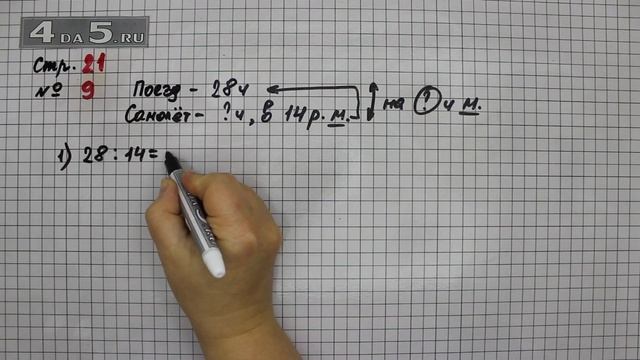 4DA5.RU
Стр. 21
№ 9
Поезд - 28ч
Самолёт - ?ч, в 14 р. м.
на ? ч м.
1) 28 : 14 =